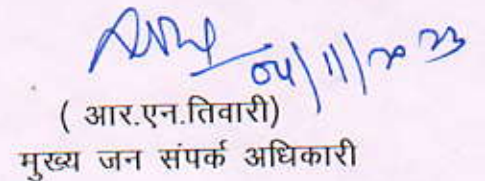 04/11/2023
( आर.एन.तिवारी)
मुख्य जन संपर्क अधिकारी